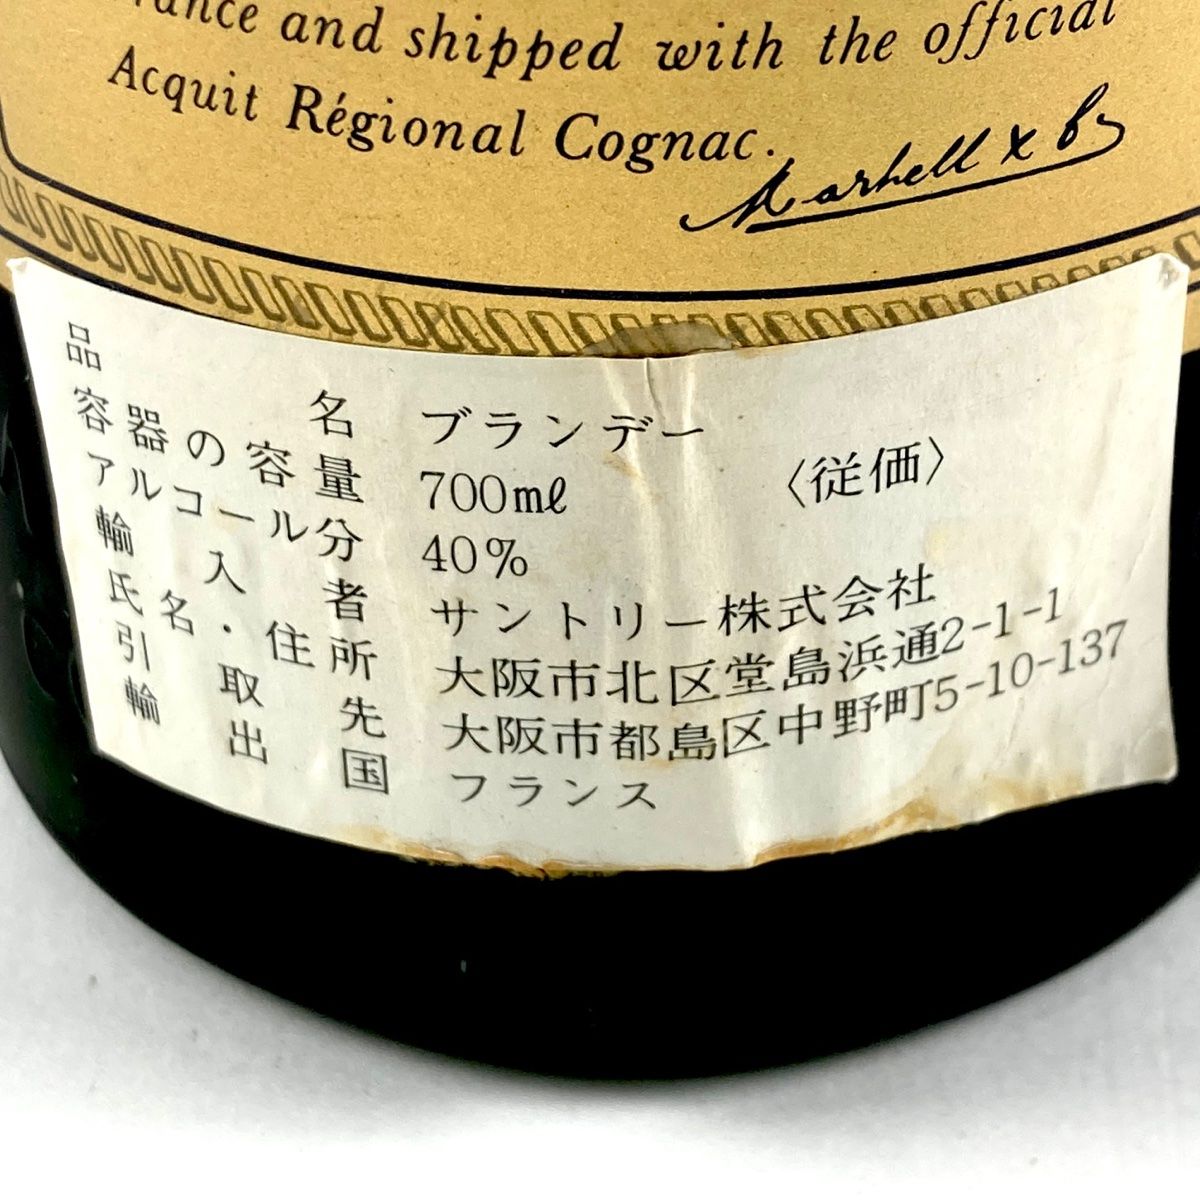 and shipped with the official
Acquit Régional Cognac.
Martell & Co
品名 ブランデー
容器の容量 700ml 〈従価〉
アルコール分 40%
輸入者 サントリー株式会社
氏名・住所 大阪市北区堂島浜通2-1-1
引取先 大阪市都島区中野町5-10-137
輸出国 フランス